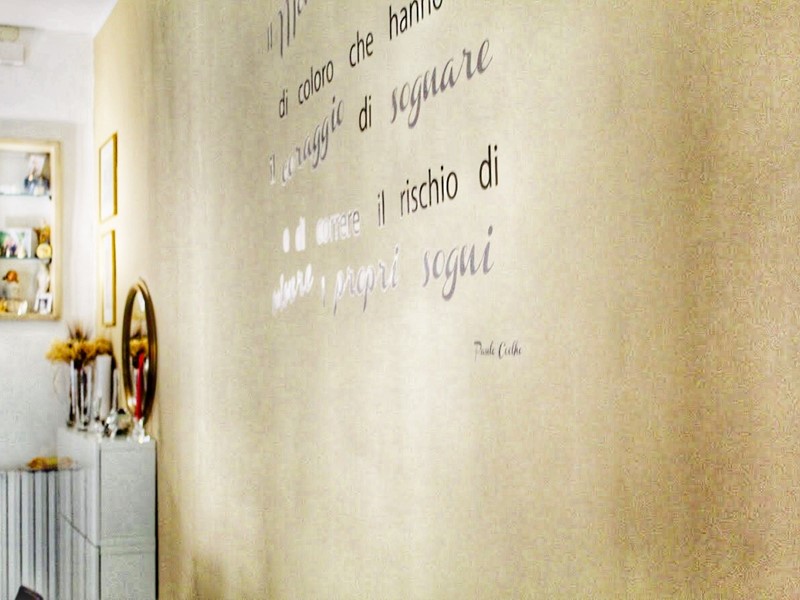 Il
di coloro che hanno
il coraggio di sognare
e di correre il rischio di
vivere i propri sogni
Paulo Coelho